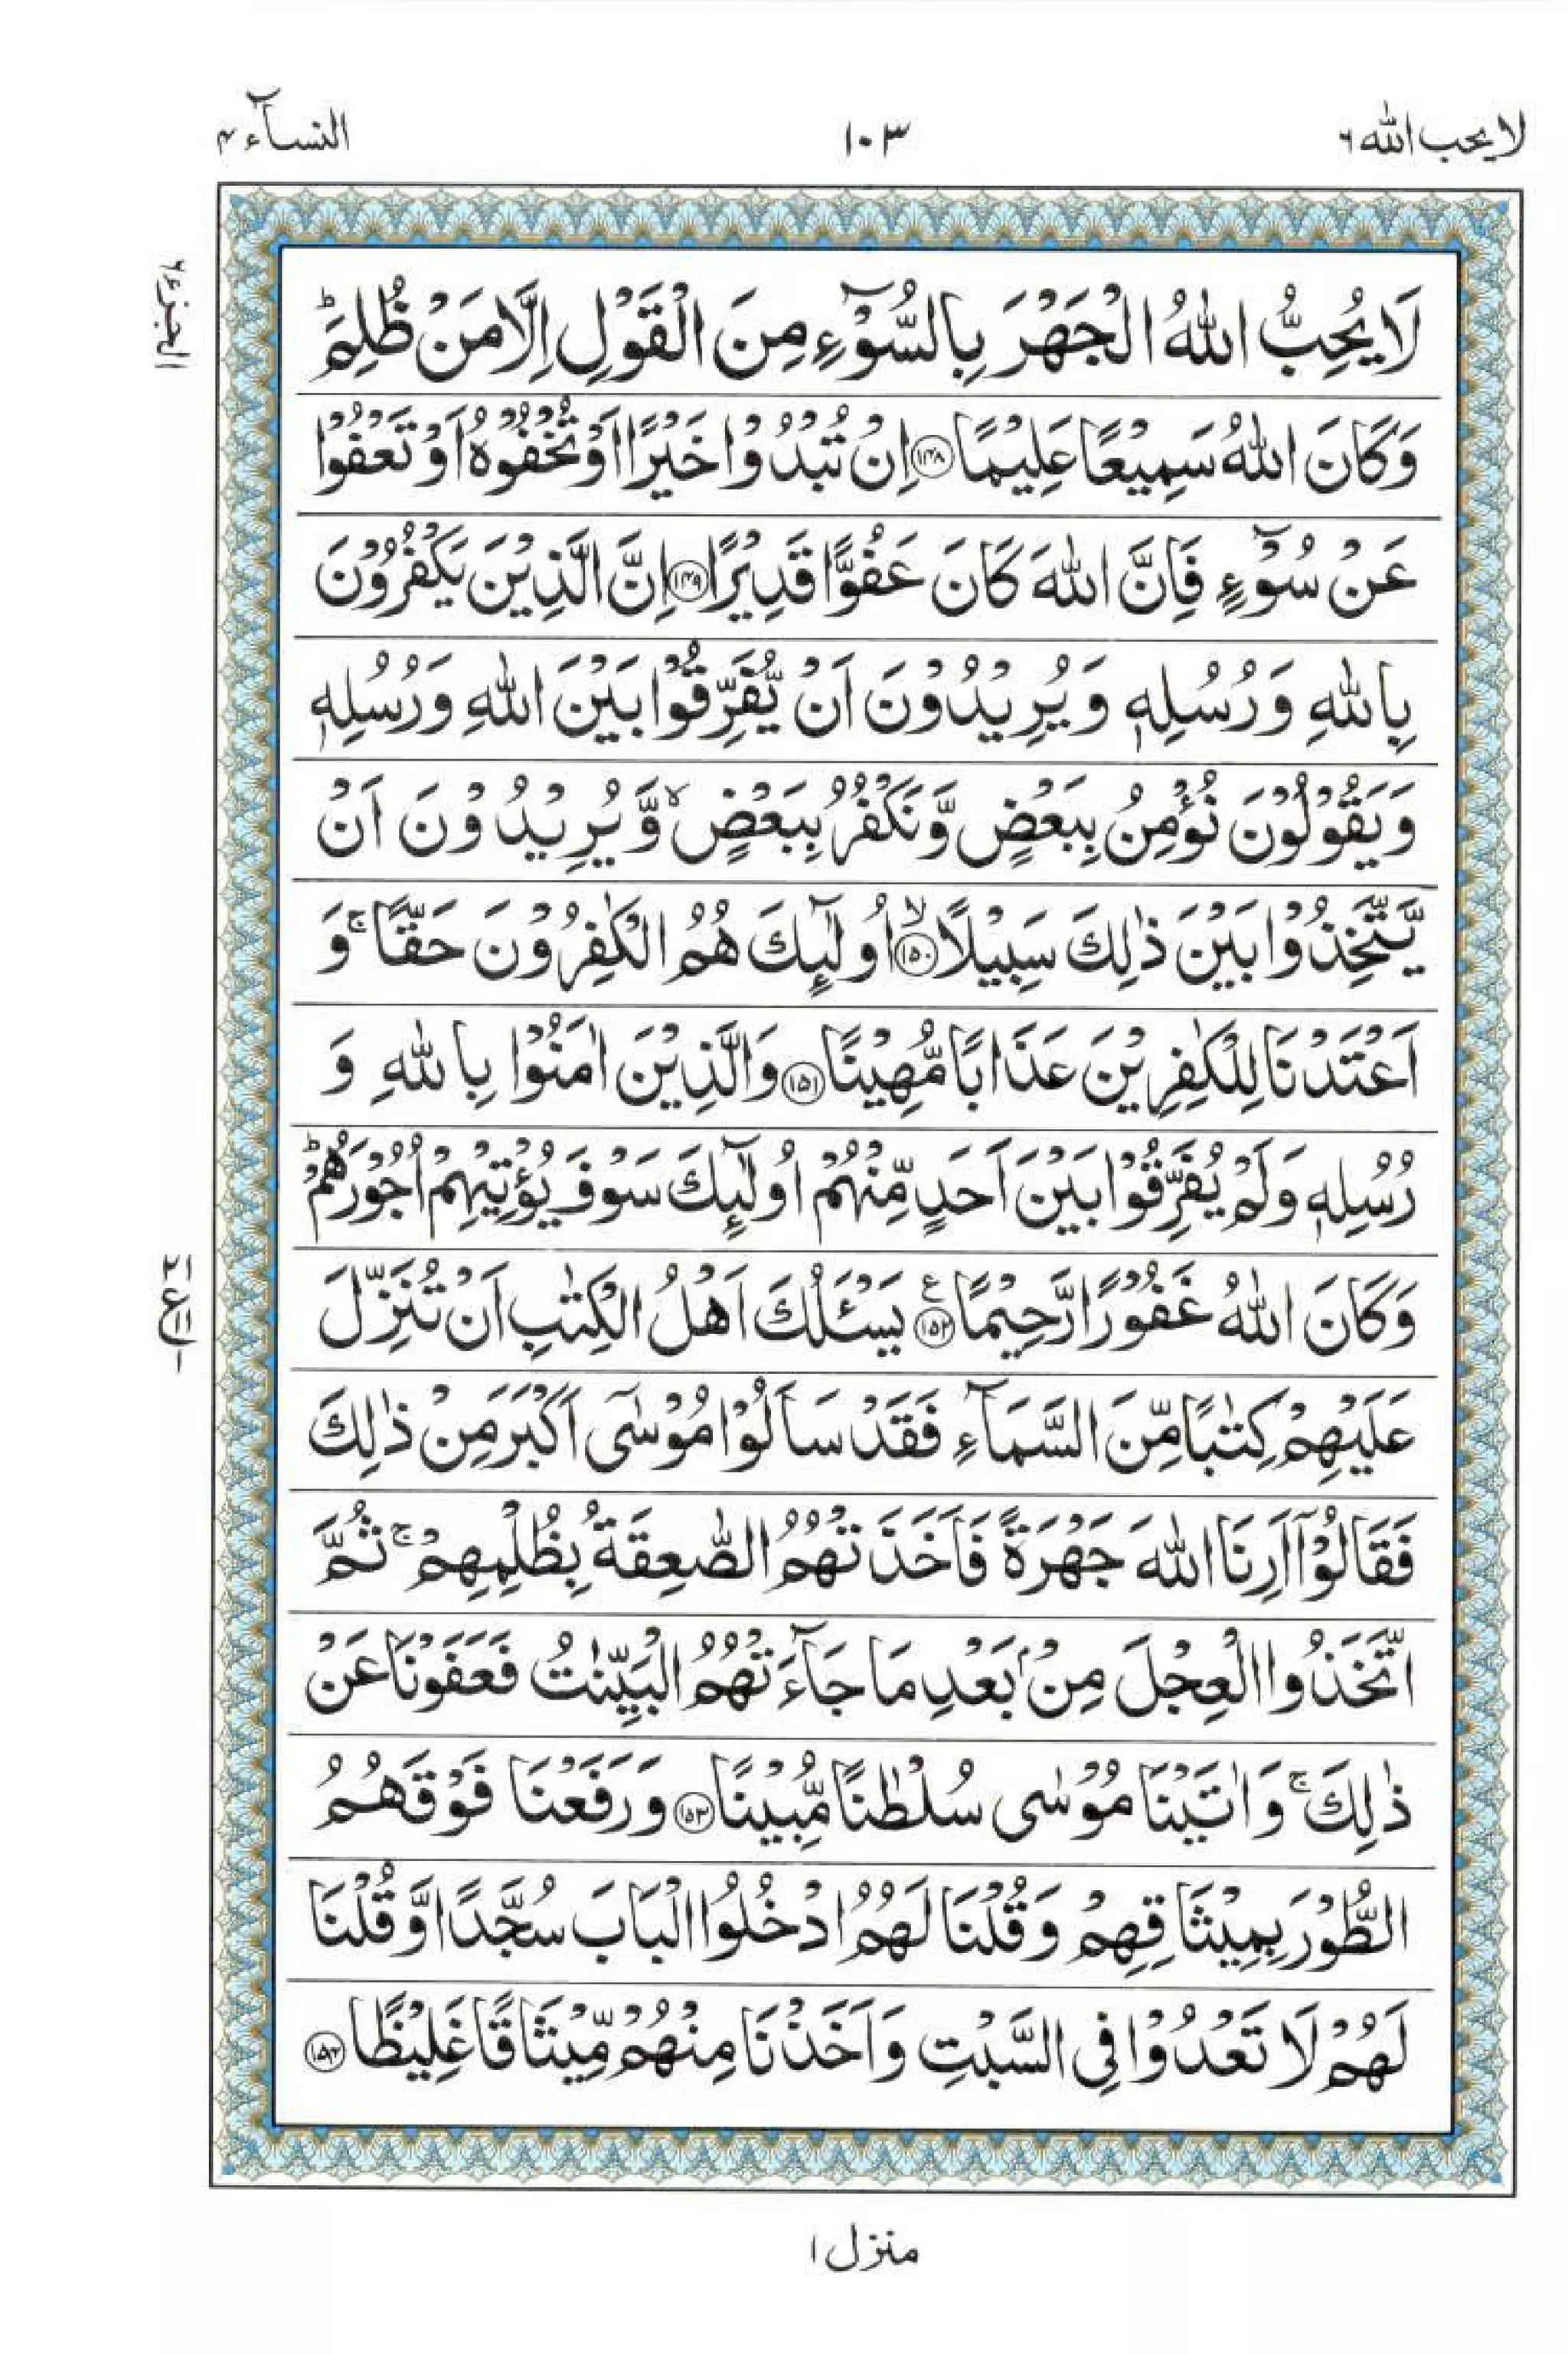 لا يحب الله ٦ ١٠٣ النسآء ٤
الجزء ٦
لَا يُحِبُّ اللّٰهُ الْجَهْرَ بِالسُّوْٓءِ مِنَ الْقَوْلِ اِلَّا مَنْ ظُلِمَ ؕ
وَكَانَ اللّٰهُ سَمِيْعًا عَلِيْمًا ﴿۱۴۸﴾ اِنْ تُبْدُوْا خَيْرًا اَوْ تُخْفُوْهُ اَوْ تَعْفُوْا
عَنْ سُوْٓءٍ فَاِنَّ اللّٰهَ كَانَ عَفُوًّا قَدِيْرًا ﴿۱۴۹﴾ اِنَّ الَّذِيْنَ يَكْفُرُوْنَ
بِاللّٰهِ وَرُسُلِهٖ وَيُرِيْدُوْنَ اَنْ يُّفَرِّقُوْا بَيْنَ اللّٰهِ وَرُسُلِهٖ
وَيَقُوْلُوْنَ نُؤْمِنُ بِبَعْضٍ وَّنَكْفُرُ بِبَعْضٍ ۙ وَّيُرِيْدُوْنَ اَنْ
يَّتَّخِذُوْا بَيْنَ ذٰلِكَ سَبِيْلًا ۙ﴿۱۵۰﴾ اُولٰٓئِكَ هُمُ الْكٰفِرُوْنَ حَقًّا ۚ وَ
اَعْتَدْنَا لِلْكٰفِرِيْنَ عَذَابًا مُّهِيْنًا ﴿۱۵۱﴾ وَالَّذِيْنَ اٰمَنُوْا بِاللّٰهِ وَ
رُسُلِهٖ وَلَمْ يُفَرِّقُوْا بَيْنَ اَحَدٍ مِّنْهُمْ اُولٰٓئِكَ سَوْفَ يُؤْتِيْهِمْ اُجُوْرَهُمْ ؕ
وَكَانَ اللّٰهُ غَفُوْرًا رَّحِيْمًا ﴿۱۵۲﴾ ع يَسْـَٔلُكَ اَهْلُ الْكِتٰبِ اَنْ تُنَزِّلَ
عَلَيْهِمْ كِتٰبًا مِّنَ السَّمَآءِ فَقَدْ سَاَلُوْا مُوْسٰٓى اَكْبَرَ مِنْ ذٰلِكَ
فَقَالُوْٓا اَرِنَا اللّٰهَ جَهْرَةً فَاَخَذَتْهُمُ الصّٰعِقَةُ بِظُلْمِهِمْ ۚ ثُمَّ
اتَّخَذُوا الْعِجْلَ مِنْۢ بَعْدِ مَا جَآءَتْهُمُ الْبَيِّنٰتُ فَعَفَوْنَا عَنْ
ذٰلِكَ ۚ وَاٰتَيْنَا مُوْسٰى سُلْطٰنًا مُّبِيْنًا ﴿۱۵۳﴾ وَرَفَعْنَا فَوْقَهُمُ
الطُّوْرَ بِمِيْثَاقِهِمْ وَقُلْنَا لَهُمُ ادْخُلُوا الْبَابَ سُجَّدًا وَّقُلْنَا
لَهُمْ لَا تَعْدُوْا فِى السَّبْتِ وَاَخَذْنَا مِنْهُمْ مِّيْثَاقًا غَلِيْظًا ﴿۱۵۴﴾
منزل ١